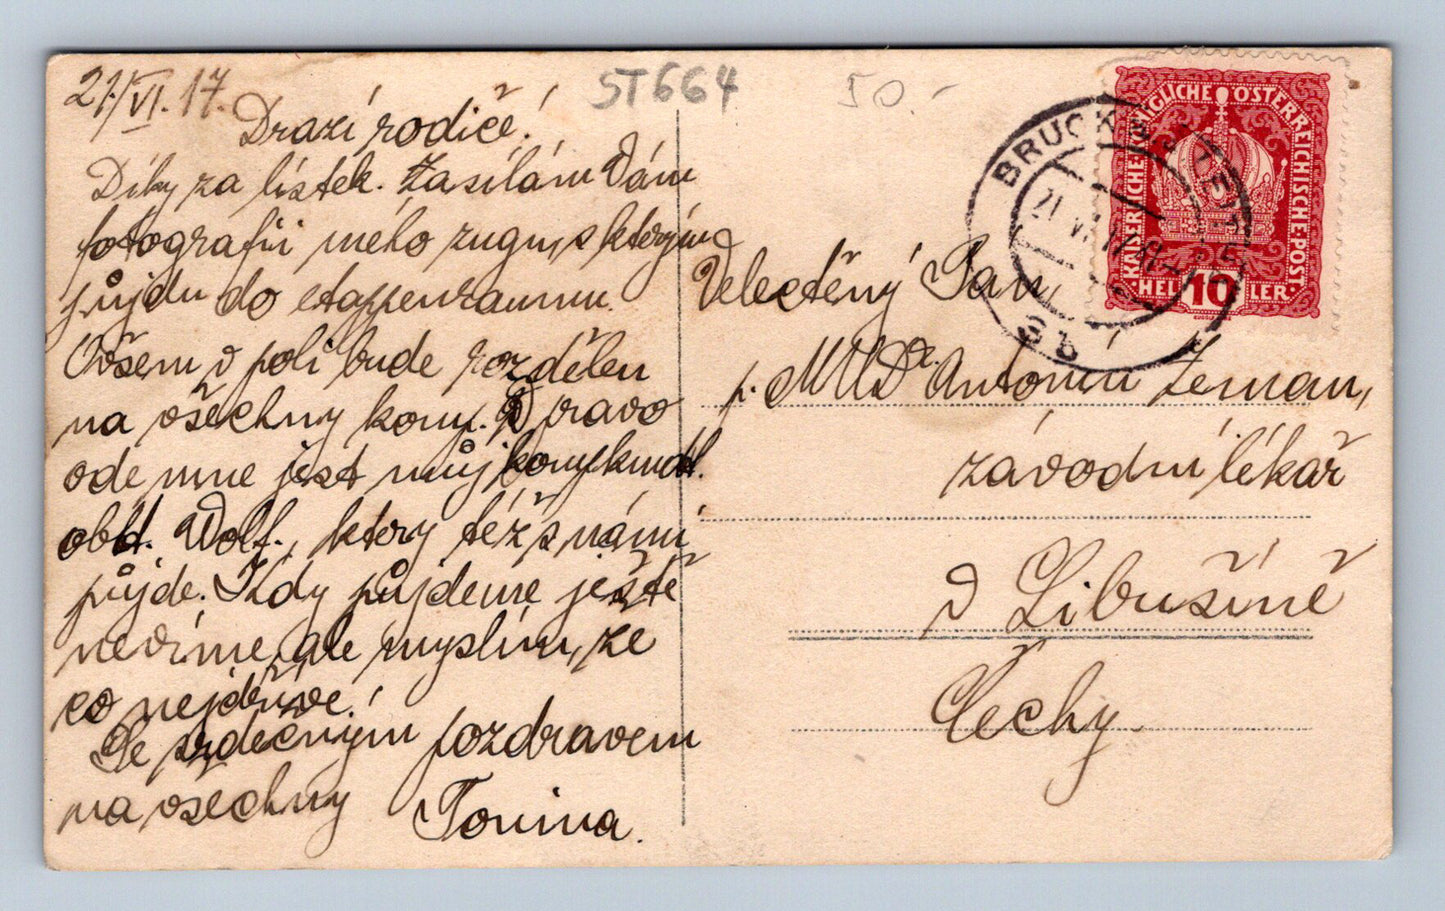 21/VI. 17.
ST664
50.-
Drazí rodiče!
Díky za lístek. Zasílám Vám
fotografii mého zugu, s kterým
půjdu do etappenraumu.
Ovšem v poli bude rozdělen
na všechny komp. Vpravo
ode mne jest můj kompkmdt.
oblt. Wolf., který též s námi
půjde. Kdy půjdeme ještě
nevíme, ale myslím, že
co nejdříve.
Se srdečným pozdravem
na všechny Tonina.
KAISERLICHE KÖNIGLICHE ÖSTERREICHISCHE POST
HEL 10 LER
BRUCK
21 VI 17
9b
Velectěný Pan
p. MUDr. Antonín Zeman,
závodní lékař
v Libušíně
Čechy.